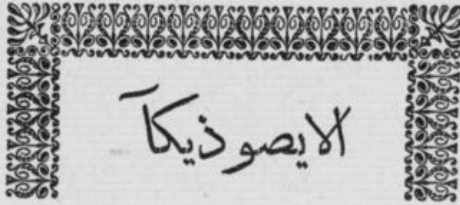 الايصوذيكآ